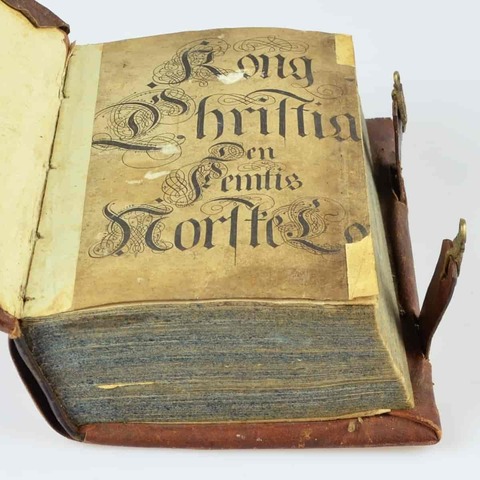 Kong
Christia
Den
Femtis
Norske Lo